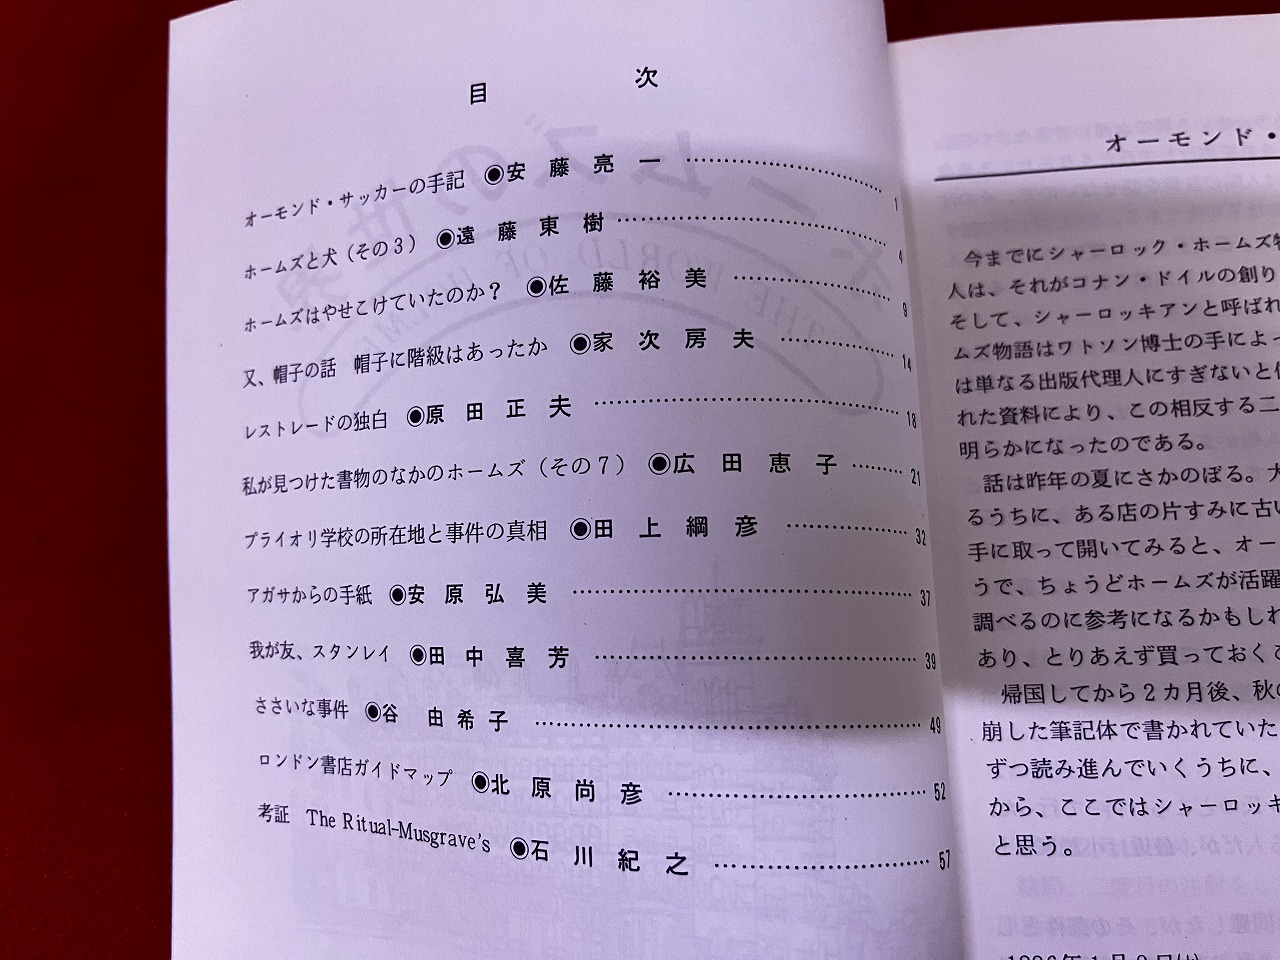 目次
オーモンド・サッカーの手記 ◉安藤亮一 …… 1
ホームズと犬（その３） ◉遠藤東樹 …… 4
ホームズはやせこけていたのか？ ◉佐藤裕美 …… 9
又、帽子の話 帽子に階級はあったか ◉家次房夫 …… 14
レストレードの独白 ◉原田正夫 …… 18
私が見つけた書物のなかのホームズ（その７） ◉広田恵子 …… 21
プライオリ学校の所在地と事件の真相 ◉田上綱彦 …… 32
アガサからの手紙 ◉安原弘美 …… 37
我が友、スタンレイ ◉田中喜芳 …… 39
ささいな事件 ◉谷由希子 …… 49
ロンドン書店ガイドマップ ◉北原尚彦 …… 52
考証 The Ritual-Musgrave's ◉石川紀之 …… 57
オーモンド・
今までにシャーロック・ホームズ物
人は、それがコナン・ドイルの創り
そして、シャーロッキアンと呼ばれ
ムズ物語はワトソン博士の手によっ
は単なる出版代理人にすぎないと
れた資料により、この相反する二
明らかになったのである。
話は昨年の夏にさかのぼる。大
るうちに、ある店の片すみに古い
手に取って開いてみると、オー
うで、ちょうどホームズが活躍
調べるのに参考になるかもしれ
あり、とりあえず買っておくこ
帰国してから２カ月後、秋の
崩した筆記体で書かれていた
ずつ読み進んでいくうちに、
から、ここではシャーロッキ
と思う。